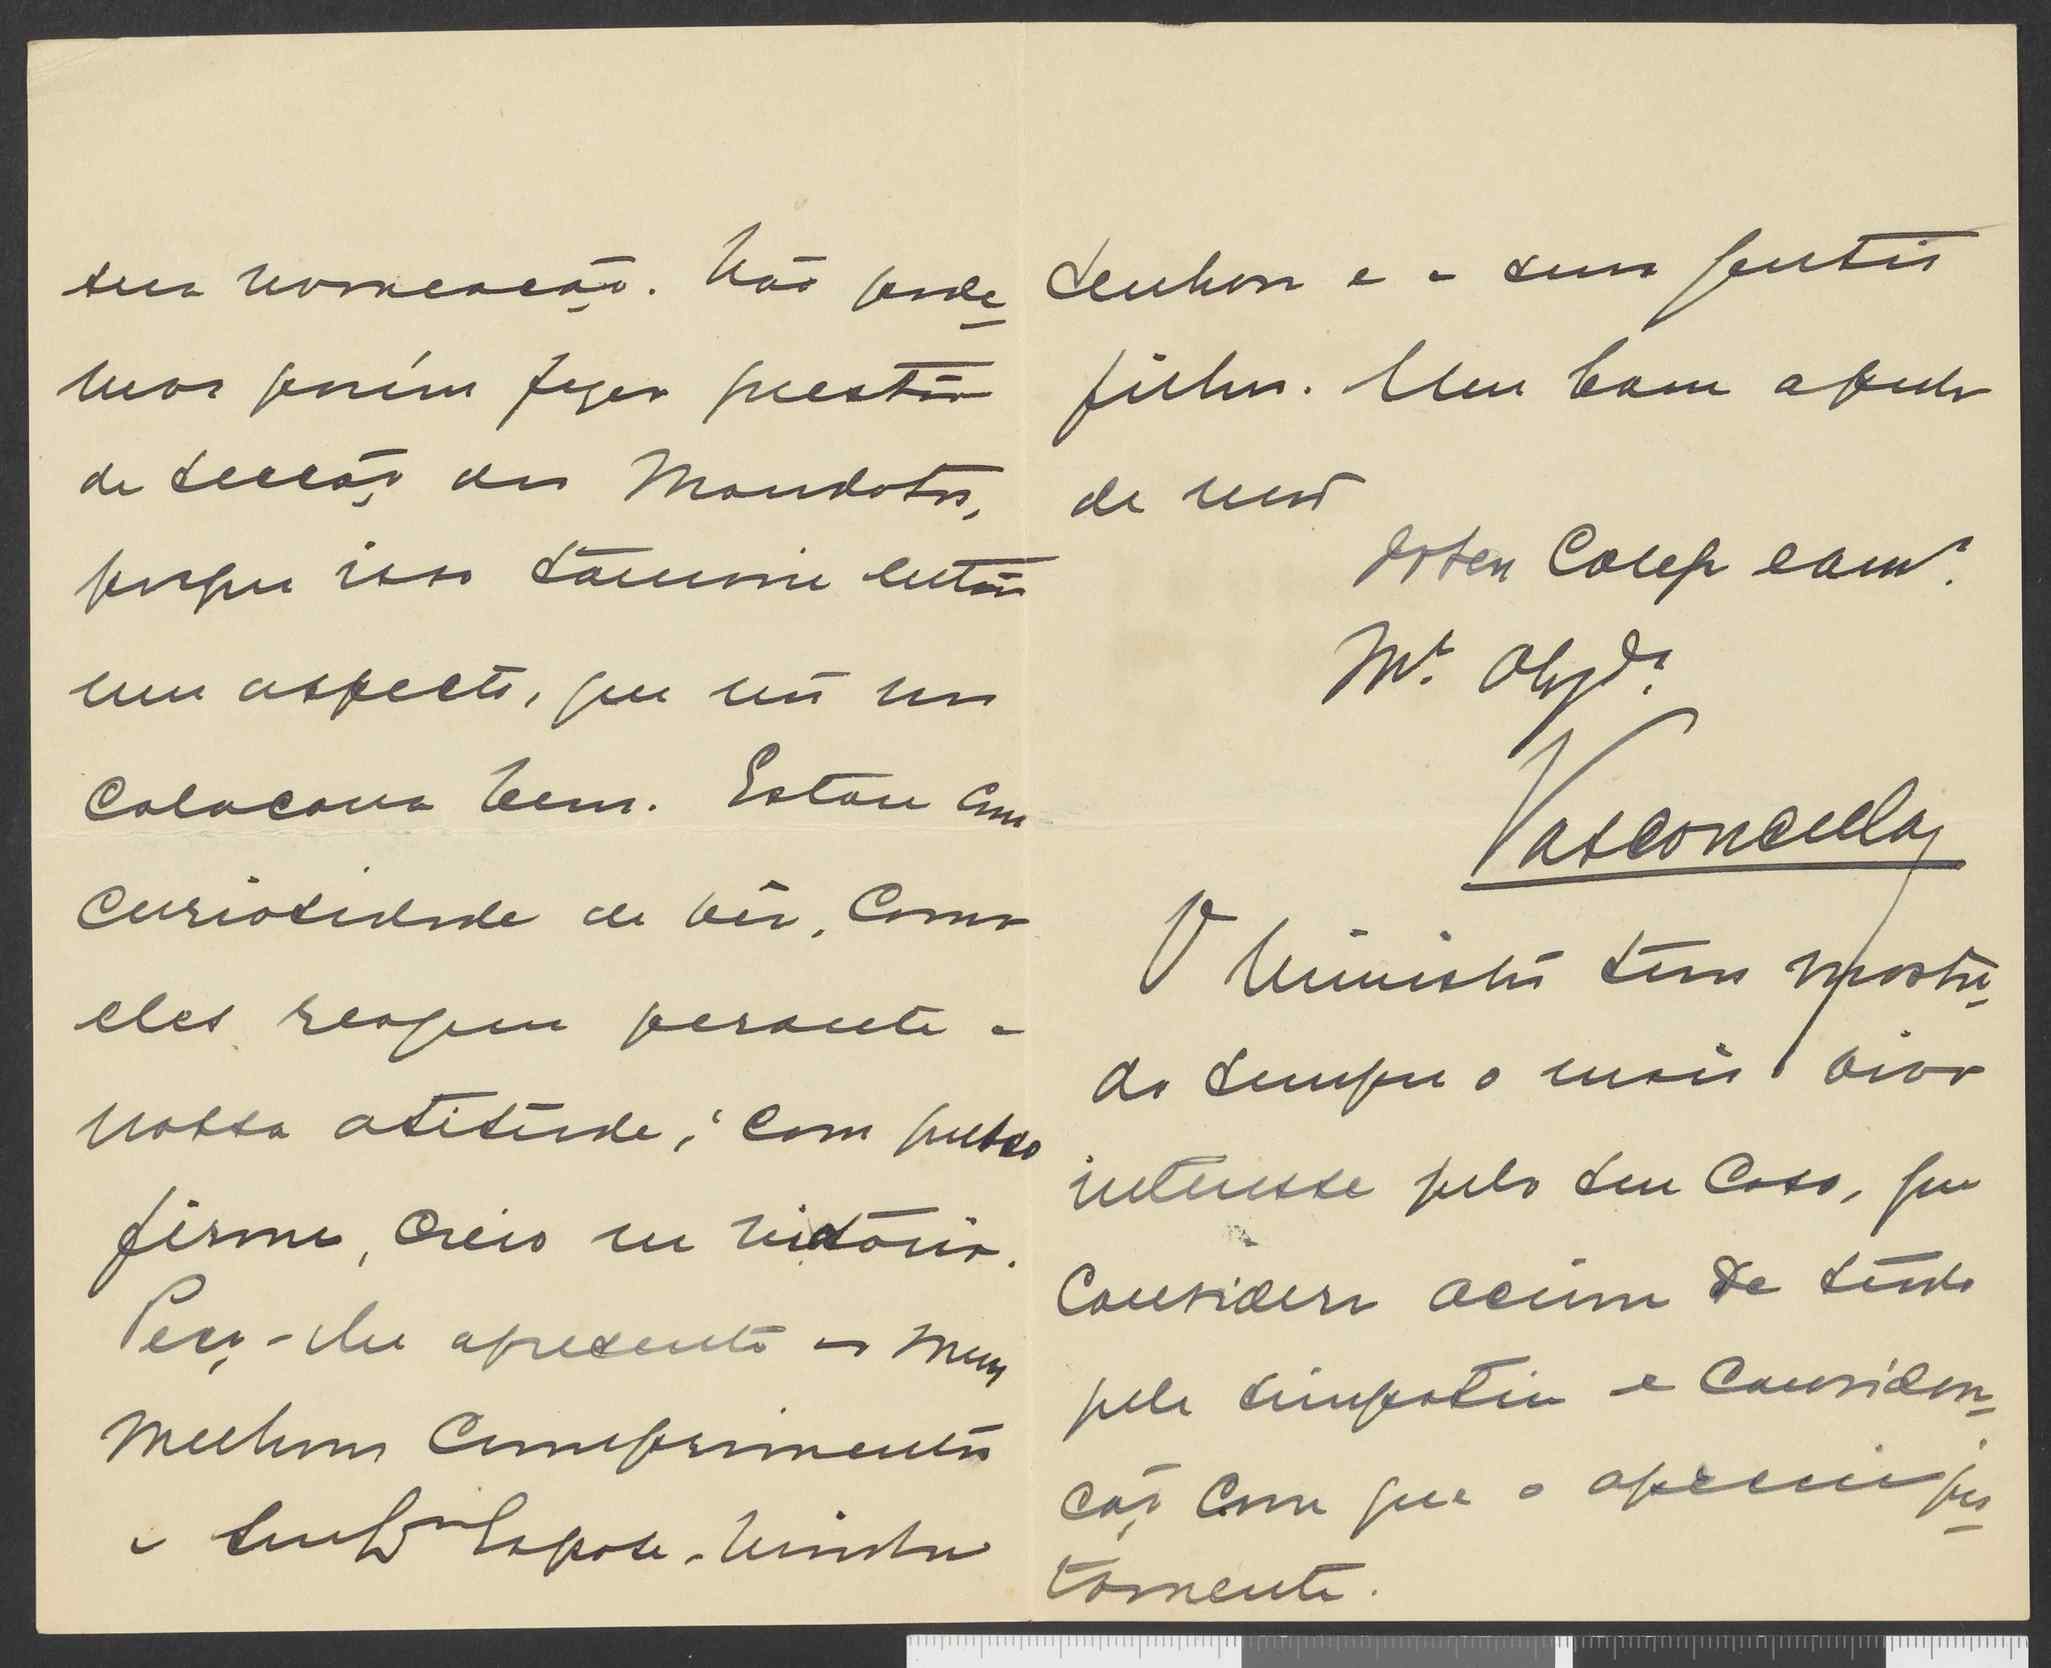 sua nomeação. Não pode-
mos porém fazer questão
da secção dos Mandatos,
porque isso tomaria então
um aspecto, que não nos
colocava bem. Estou com
curiosidade de vêr, como
eles reagem perante a
nossa atitude; com pulso
firme, creio na victória.
Peço-lhe apresente os meus
melhores cumprimentos
a sua Exma Esposa, minha
Senhora e a seus gentis
filhos. Um bom aperto
de mão
do seu Colega e amº.
Mtº. Obgdº.
Vasconcellos
O Ministro tem mostra-
do sempre o mais vivo
interesse pelo seu caso, que
considera acima de tudo
pela simpatia e considera-
ção com que o aprecia jus-
tamente.